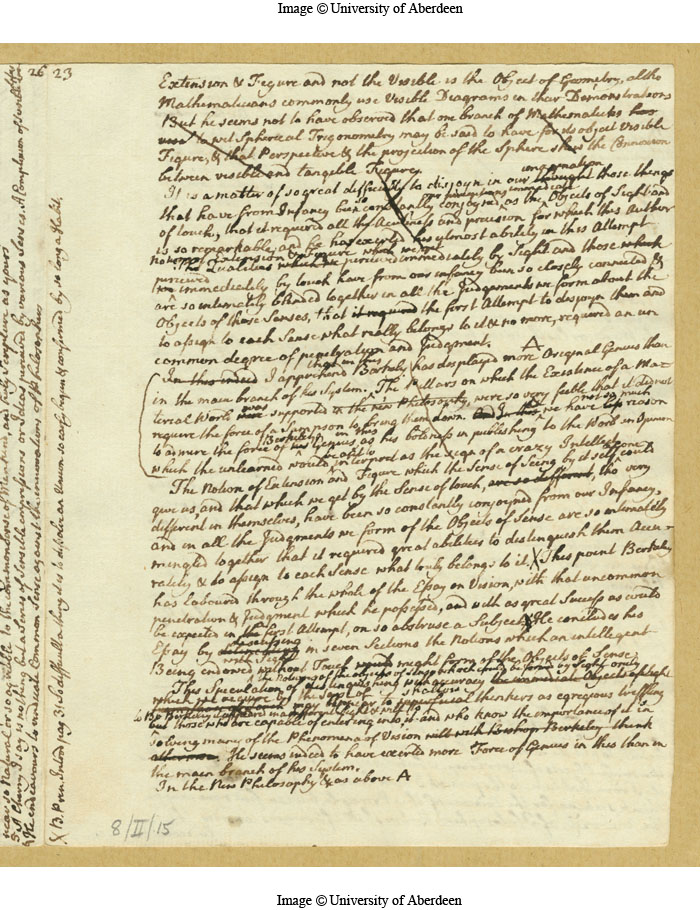 Image © University of Aberdeen
26
23
Extension & Figure and not the Visible is the Object of Geometry, altho
Mathematicians commonly use Visible Diagrams in their Demonstrations
But he seems not to have observed that one branch of Mathematicks has
to wit Spherical Trigonometry may be said to have for its object Visible
Figure, & that Perspective & the projection of the Sphere shew the Connexion
between visible and tangible Figure.
It is a matter of so great difficulty to disjoyn in our thought those things
that have from Infancy been so constantly conjoyned, as the Objects of Sight and
of touch, that it required all the Acuteness and precision for which this Author
is so remarkable, and he has exerted his utmost ability in this Attempt
The Qualities which are perceived immediately by Sight and those which
perceived
immediately by touch have from our infancy been so closely connected &
are so intimately blended together in all the Judgements we form about the
Objects of those Senses, that it required the first Attempt to disjoyn them and
to assign to each Sense what really belongs to it & no more, required an un
common degree of penetration and Judgment.
A
than in this
In this indeed I apprehend Berkeley has displayed more Original Genius than
in the main branch of his System. The Pillars on which the Existence of a Ma-
terial World was supported in the new Philosophy, were so very feeble, that it did not
require the force of a Sampson to bring them down. And in this we have not so much reason
Berkeleys in this
to admire the force of his Genius as his boldness in publishing to the World an Opinion
which the unlearned would be apt to interpret as the sign of a crazy Intellect.
The Notion of Extension and Figure which the Sense of Seeing by it self could
give us and that which we get by the Sense of touch, are so different, tho very
different in themselves, have been so constantly conjoyned from our Infancy,
and in all the Judgments we form of the Objects of Sense are so intimately
mingled together that it required great abilities to distinguish them Accu-
rately & to assign to each Sense what truly belongs to it. X This point Berkeley
has laboured through the whole of the Essay on Vision, with that uncommon
penetration & Judgment which he possessed, and with as great Success as could
be expected in the first Attempt, on so abstruse a Subject. X He concludes his
Essay by in seven Sections the Notions which an intelligent
Being endowed with Sight without Touch might form of the Objects of Sense.
This Speculation of
shallow thinkers as egregious trifling
but those who are capable of entering into it and who know the importance of it in
solving many of the Phenomena of Vision will with Bishop Berkeley think
otherwise. He seems indeed to have exerted more Force of Genius in this than in
the main branch of his System.
In the New Philosophy &c as above A
8/II/15
near so Natural or so agreeable to the common Sense of Mankind, and holy Scripture as yours
5 A Cherry I say is nothing but a Series of Sensible impressions or Ideas perceived by various Senses. A Complexion of sensible
6 He endeavours to vindicate Common Sense against the innovations of Philosophers
X B. Prin. Introd. pag. 31. So difficult a thing it is to dissolve an Union so early begun & confirmed by so long a Habit,
Image © University of Aberdeen